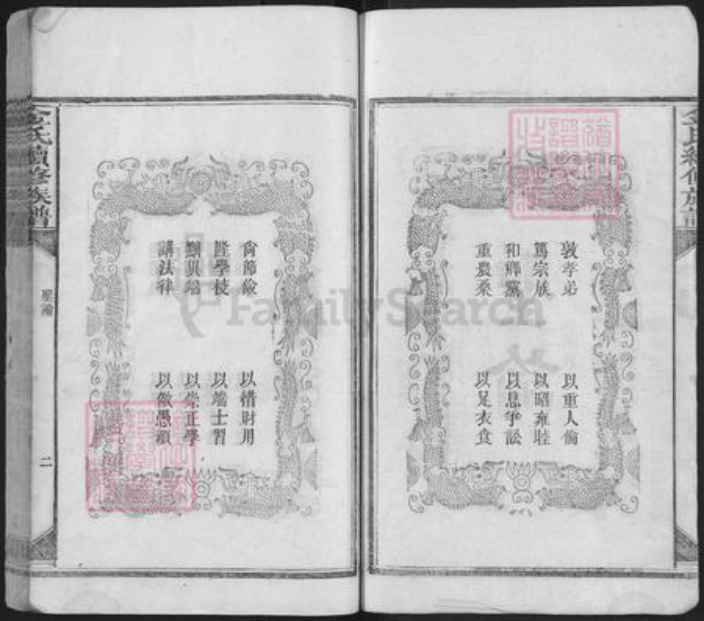 敦孝弟 以重人倫
篤宗族 以昭雍睦
和鄉黨 以息爭訟
重農桑 以足衣食
尙節儉 以惜財用
隆學校 以端士習
黜異端 以崇正學
講法律 以儆愚頑
金氏續修族譜
聖諭
二
金氏續修族譜
FamilySearch